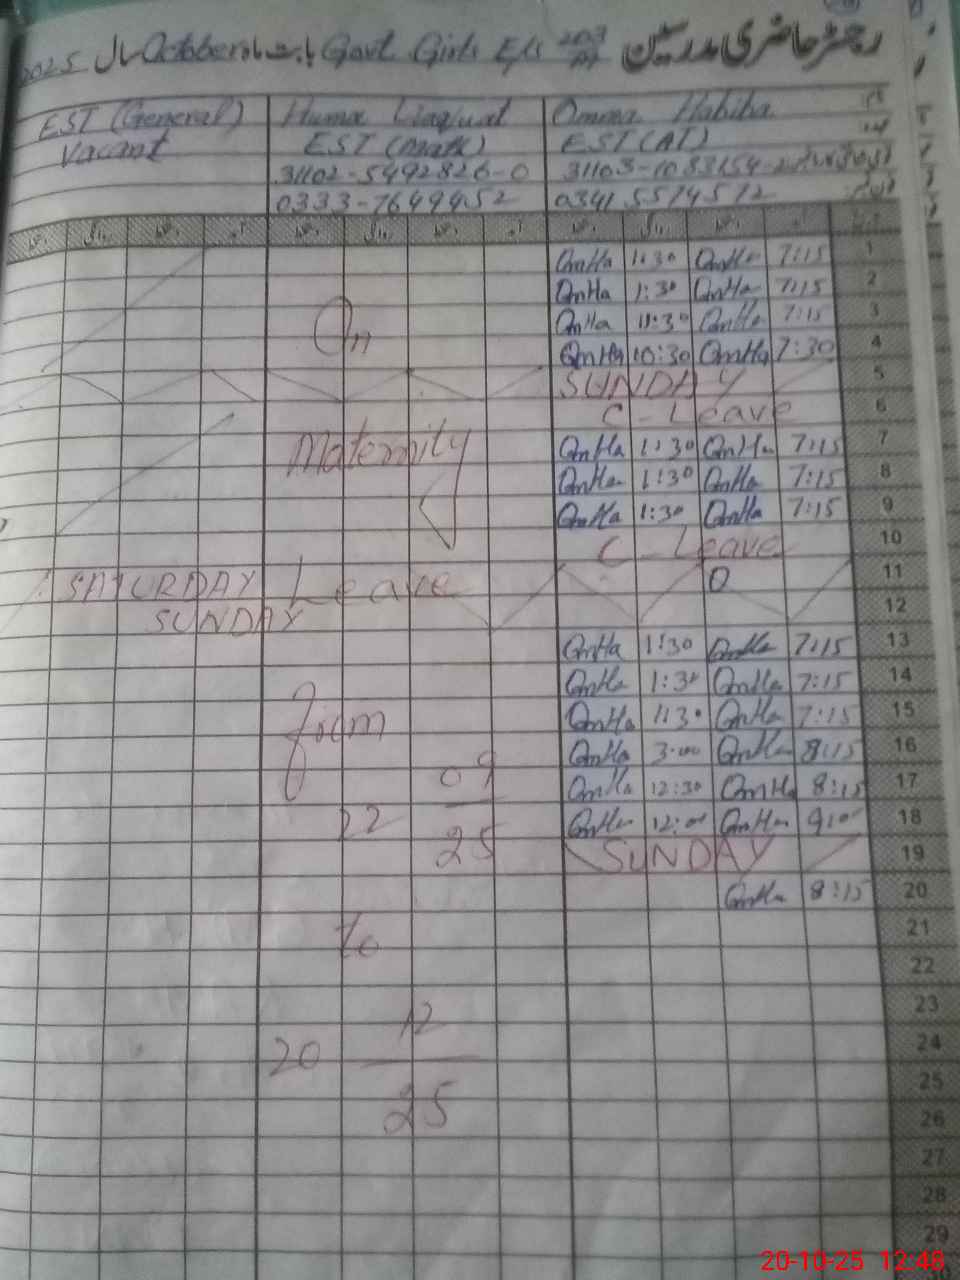 رجسٹر حاضری مدرسین Govt. Girls E/S بابت ماہ October سال 2025
EST (General) Huma Liaquat Omma Habiba
Vacant EST (Math) EST (AT)
31102-5492826-0 31103-1083154-2
0333-7649452 0341 5514572
OmHa 1:30 OmHa 7:15 1
OmHa 1:30 OmHa 7:15 2
OmHa 11:30 OmHa 7:15 3
On OmHa 10:30 OmHa 7:30 4
SUNDAY 5
C - Leave 6
Maternity OmHa 1:30 OmHa 7:15 7
OmHa 1:30 OmHa 7:15 8
OmHa 1:30 OmHa 7:15 9
C - Leave 10
SATURDAY Leave 11
SUNDAY 12
OmHa 1:30 OmHa 7:15 13
OmHa 1:30 OmHa 7:15 14
from OmHa 1:30 OmHa 7:15 15
OmHa 3:00 OmHa 8:15 16
09 OmHa 12:30 OmHa 8:15 17
22 OmHa 12:00 OmHa 9:0 18
25 SUNDAY 19
OmHa 8:15 20
to 21
22
12 23
20 24
25 25
26
27
28
29
20-10-25 12:48